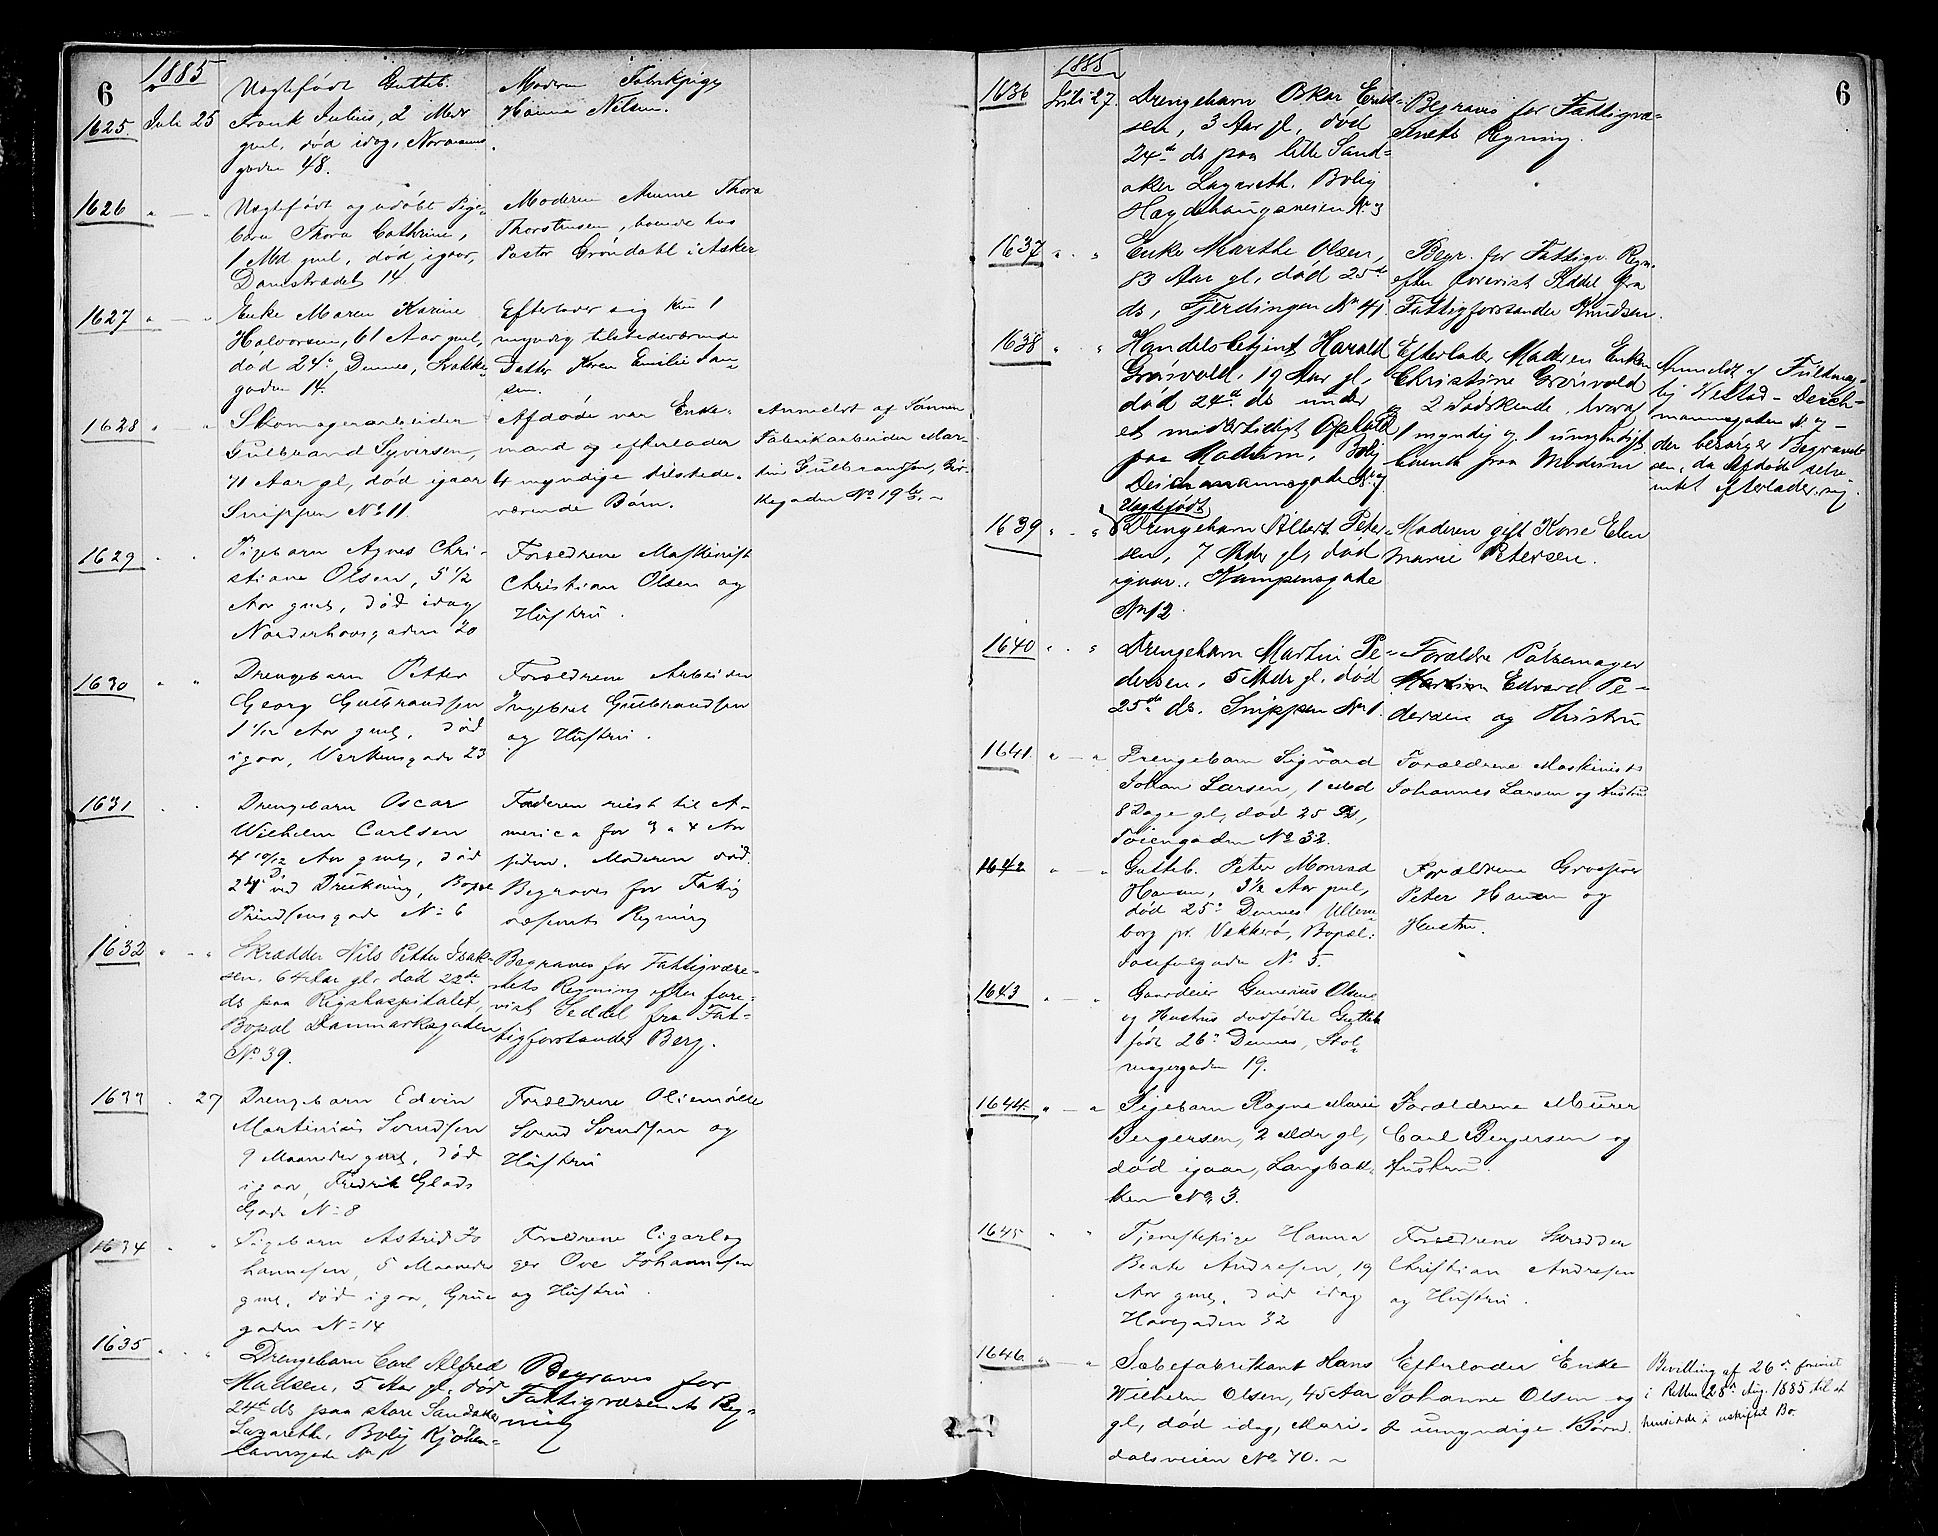 6
1885
1625. Juli 25
Uægtefødt Gutteb.
Frank Julius, 2 Mdr
gml, død idag, Normanns
gaden 48.
Moderen Fabrikpige
Hanna Nelsen.
1626 " — "
Uægtefødt og udøbt Pige-
barn Thora Cathrine,
1 Md gml, død igaar,
Damstrædet 14.
Moderen Anne Thora
Thorstensen, boende hos
Pastor Gröndahl i Asker
1627 " — "
Enke Maren Karine
Halvorsen, 61 Aar gml,
død 24de Dennes, Brokke-
gaden 14.
Efterlader sig kun 1
myndig tilstedeværende
Datter Karen Emilie Jan-
sen.
1628 " — "
Skomagerarbeider
Gulbrand Syversen,
71 Aar gl, død igaar
Snippen No 11.
Afdøde var Enke-
mand og efterlader
4 myndige tilstede-
værende Børn.
Anmeldt af Sønnen
Fabrikarbeider Mar-
tin Gulbrandsen, Bir-
kegaden No 19
1629 " "
Pigebarn Agnes Chri-
stiane Olsen, 5 1/2
Aar gml, død idag
Norderhovsgaden 20
Forældrene Maskinist
Christian Olsen og
Hustru.
1630 " "
Drengebarn Petter
Georg Gulbrandsen
1 1/12 Aar gml, død
igaar, Verkensgade 23
Forældrene Arbeider
Ingebret Gulbrandsen
og Hustru.
1631 " "
Drengebarn Oscar
Wilhelm Carlsen
4 10/12 Aar gml, død
24de ved Drukning, Bopæl
Prindsensgade No 6
Faderen reist til A-
merica for 3 a 4 Aar
siden. Moderen død.
Begraves for Fattig
væsenets Regning
1632 " — "
Skrædder Nils Petter Isak-
sen, 64 Aar gl, død 22de
ds paa Rigshospitalet,
Bopæl Danmarksgaden
No 39.
Begraves for Fattigvæse-
nets Regning efter fore-
vist Seddel fra Fat-
tigforstander Berg.
1633 . 27
Drengebarn Edvin
Martinius Svendsen
9 Maaneder gml, død
igaar, Fredrik Glads
Gade No 8
Forældrene Oliemølle
Svend Svendsen og
Hustru
1634 " "
Pigebarn Astrid Jo
hannesen, 5 Maaneder
gml, død igaar, Grüne
gaden No 14
Forældrene Cigarlag
ger Ove Johannesen
og Hustru.
1635 " "
Drengebarn Carl Alfred
Madsen, 5 Aar gl, død
24de ds paa store Sandaker
Lazareth, Bolig Kjøben-
havnsgade No 1
Begraves for
Fattigvæsenets Reg-
ning
6
1885
1636 Juli 27.
Drengebarn Oskar Erik-
sen, 3 Aar gl, død
24de ds paa lille Sand-
aker Lazareth. Bolig
Hægdehaugsveien No 3
Begraves for Fattigvæ-
snets Regning.
1637 " . "
Enke Marthe Olsen,
83 Aar gl, død 25de
ds, Fjerdingen No 41
Begr. for Fattigv. Regn.
efter forevist Seddel fra
Fattigforstander Knudsen.
1638 " "
Handelsbetjent Harald
Grønvold, 19 Aar gl,
død 24de ds under
et midlertidigt Ophold
paa Modum, Bolig
Deichmannsgade No 9
Efterlater Moderen Enken
Christine Grønvold
og 2 Sødskende, hvoraf
1 myndig og 1 umyndigt
boende paa Modum
Anmeldt af Fuldmæg-
tig Westad - Deich-
mannsgaden No 9 -
der besørger Begravel-
sen, da Afdøde selv
intet efterlader sig.
1639 " . "
Uægtefødt
Drengebarn Albert Peter-
sen, 7 Mdr gl, død
igaar. Kampensgate
No 12.
Moderen gift Kone Elen
Marie Petersen.
1640 " . "
Drengebarn Martin Pe-
dersen, 5 Mdr gl, død
25de ds. Snippen No 1.
Forældre Pølsemager
Martin Edvard Pe-
dersen og Hustru
1641 " — "
Drengebarn Sigvard
Johan Larsen, 1 Md
8 Dage gl, død 25 Ds,
Tøiengaden No 32.
Forældrene Maskinist
Johannes Larsen og Hustru
1642 " — "
Gutteb. Peter Monrad
Hansen, 3 1/2 Aar gml,
død 25de Dennes Ullern
borg pr. Vækkerø, Bopæl:
Josefinegade No 5.
Forældrene Grosserer
Peter Hansen og
Hustru.
1643 " — "
Gaardeier Gunerius Olsens
og Hustrus dødfødte Gutteb
født 26de Dennes, Stol-
magergaden 19.
1644 " — "
Pigebarn Ragna Marie
Bergersen, 2 Mdr gl,
død igaar, Langbak-
ken No 3.
Forældrene Murer
Carl Bergersen og
Hustru.
1645 " "
Tjenestepige Hanna
Beate Andresen, 19
Aar gml, død idag
Havegaden 32
Forældrene Skrædder
Christian Andresen
og Hustru.
1646 " — "
Sæbefabrikant Hans
Wilhelm Olsen, 45 Aar
gl, død idag, Mari-
dalsveien No 70. —
Efterlader Enke
Johanne Olsen og
2 umyndige Børn.
Bevilling af 26de forevist
i Retten 28de Aug. 1885 til at
hensidde i uskiftet Bo.